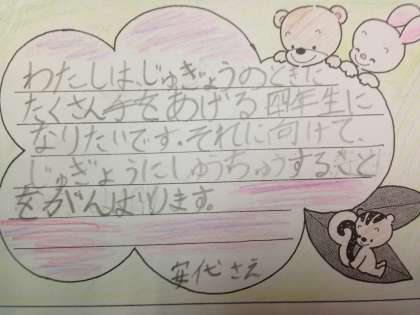 わたしは、じゅぎょうのときに
たくさん手をあげる四年生に
なりたいです。それに向けて、
じゅぎょうにしゅうちゅうすること
をがんばります。
安代さえ